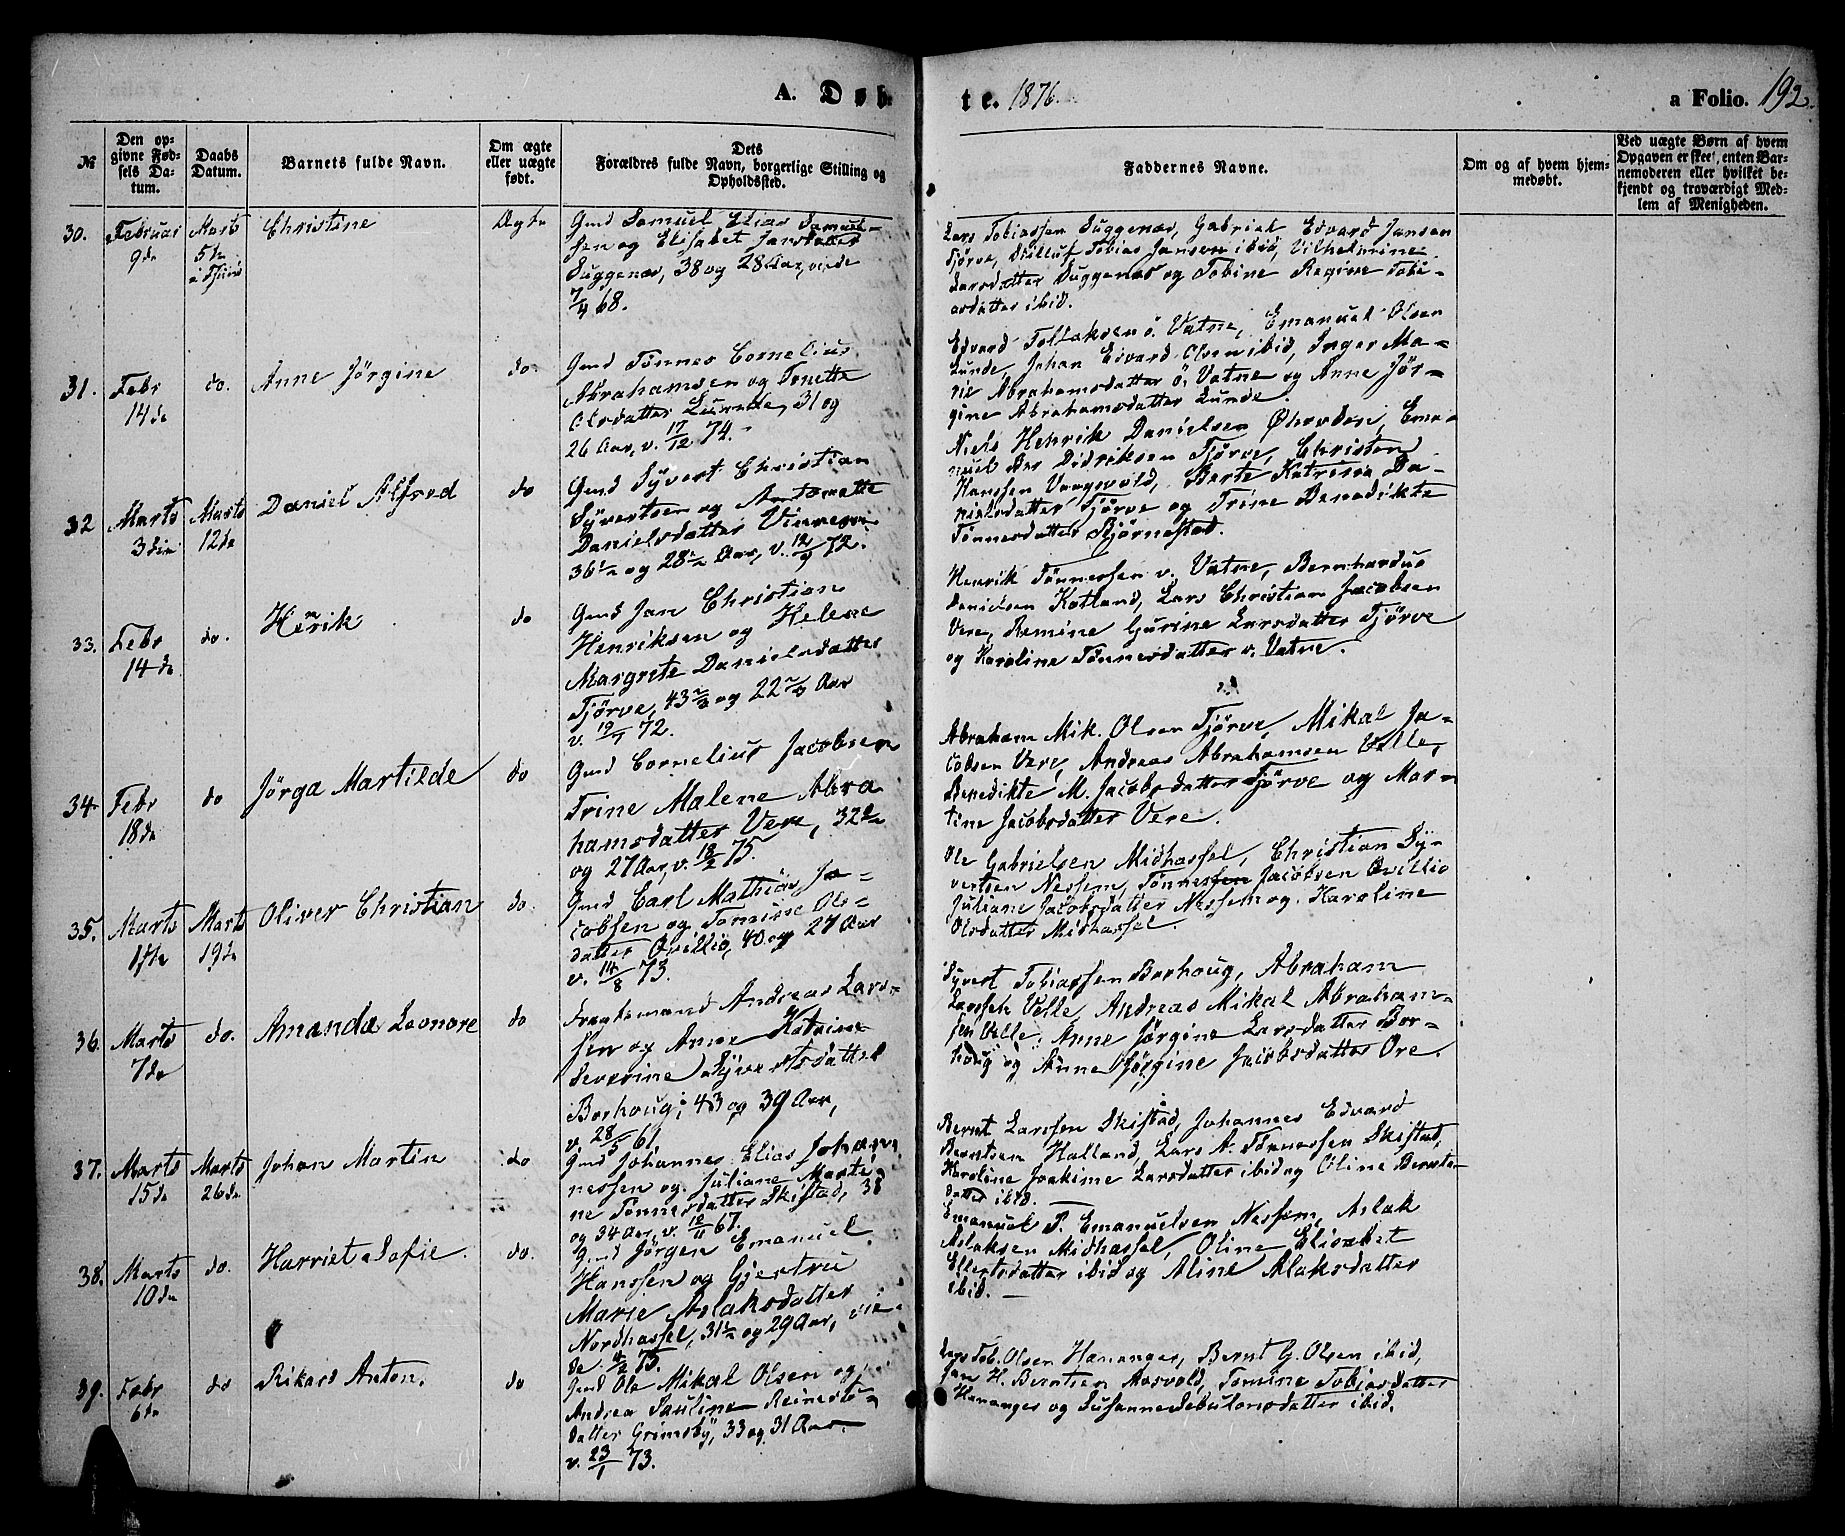 A. Døb-
te. 1876.
a Folio. 192.
№
Den op-
givne Fød-
sels Da-
tum.
Daabs
Datum.
Barnets fulde Navn.
Om ægte
eller uægte
født.
Dets
Forældres fulde Navn, borgerlige Stilling og
Opholdssted.
Faddernes Navne.
Om og af hvem hjem-
medøbt.
Ved uægte Børn af hvem
Opgaven er skeet, enten Bar-
nemoderen eller hvilket be-
kjendt og troværdigt Med-
lem af Menigheden.
30.
Februar
9de
Marts
5te
Christine
Ægte
Gmd Samuel Elias Samuel-
sen og Elisabet Jansdatter
Duggenæs, 38 og 28 Aar, viede
7/4 68.
Lars Tobiassen Duggenæs, Gabriel Edvard Jansen
Tjørve, Ditlluf Tobias Jansen ibid, Vilhelmine
Larsdatter Duggenæs og Tobine Regine Tobi-
asdatter ibid.
31.
Febr
14de
do.
Anne Jörgine
do
Gmd Tönnes Cornelius
Abrahamsen og Tonette
Olsdatter Lunde, 31 og
26 Aar, v. 17/12 74.
Edvard Tollaksen ö. Vatne, Emanuel Olsen
Lunde, Johan Edvard Olsen ibid, Inger Ma-
rie Abrahamsdatter ö. Vatne og Anne Jör-
gine Abrahamsdatter Lunde.
32
Marts
3die
Marts
12te
Daniel Alfred
do
Gmd Syvert Christian
Syvertsen og Antonette
Danielsdatter
36½ og 28½ Aar, v. 12/9 72.
Niels Henrik Danielsen Ousdal, Ema-
nuel Didriksen Tjörve, Christen
Hanssen Vaagsvold, Berte Katrine Da-
nielsdatter Tjörve og Trine Benedikte
Tönnesdatter Björnestad.
33.
Febr
14de
do.
Henrik
do
Gmd Jan Christian
Henriksen og Helene
Margrete Danielsdatter
Tjörve, 43⅔ og 22⅔ Aar
v. 19/1 72.
Henrik Tönnessen v. Vatne, Bernhardus
Danielsen Kolland, Lars Christian Jacobsen
Vere, Remine Gurine Larsdatter Tjörve
og Karoline Tönnesdatter v. Vatne.
34
Febr
18de
do
Jörga Martilde
do
Gmd Cornelius Jacobsen
Trine Malene Abra
hamsdatter Vere, 32½
og 27 Aar, v. 18/2 75.
Abraham Mik. Olsen Tjörve, Mikal Ja-
cobsen Vere, Andreas Abrahamsen Velle,
Benedikte M. Jacobsdatter Tjörve og Mar-
tine Jacobsdatter Vere.
35.
Marts
1ste
Marts
19de
Oliver Christian
do.
Gmd Carl Mathias Ja-
cobsen og Tomine Ols-
datter Ovillio, 40 og 27 Aar
v. 14/8 73.
Ole Gabrielsen Midhassel, Christian Sy-
vertsen Nessem, Tönnes Jacobsen Ovillio
Juliane Jacobsdatter Nessem og Karoline
Olsdatter Midhassel.
36.
Marts
7de
do.
Amanda Leonore
do
Fragtemand Andreas Lars-
sen og Anne Katrine
Severine Syvertsdatter
Borhoug, 43 og 39 Aar,
v. 28/5 61.
Syvert Tobiassen Borhoug, Abraham
Larssen Velle, Andreas Mikal Abraham-
sen Velle, Anne Jörgine Larsdatter Bor-
houg og Anne Jörgine Jacobsdatter Ore.
37.
Marts
15de
Marts
26de
Johan Martin
do
Gmd Johannes Elias Johan-
nessen og Juliane Marti-
ne Tönnesdatter Skistad, 38
og 34 Aar, v. 12/11 67.
Bernt Larssen Skistad, Johannes Edvard
Berntsen Halland, Lars A. Tönnessen Skistad,
Karoline Joakime Larsdatter ibid og Oline Bernts-
datter ibid.
38.
Marts
10de
do.
Harriet Sofie.
do.
Gmd Jörgen Emanuel
Hanssen og Gjertru
Marie Aslaksdatter
Nordhassel, 31½ og 29 Aar, vie-
de 4/2 75.
Emanuel T. Emanuelsen Nessem, Aslak
Aslaksen Midhassel, Oline Elisabet
Ellertsdatter ibid og Aline Aslaksdatter
ibid.
39.
Febr
6te
do
Rikard Anton.
do
Gmd Ole Mikal Olsen og
Andrea Pauline Reinerts-
datter Grimsby, 33 og 31 Aar
v. 23/1 73.
Lars Tob. Olsen Hananger, Bernt G. Olsen ibid,
Jan H. Berntsen Mosvold, Tomine Tobiasdatter
Hananger og Susanne Sebulonsdatter ibid.